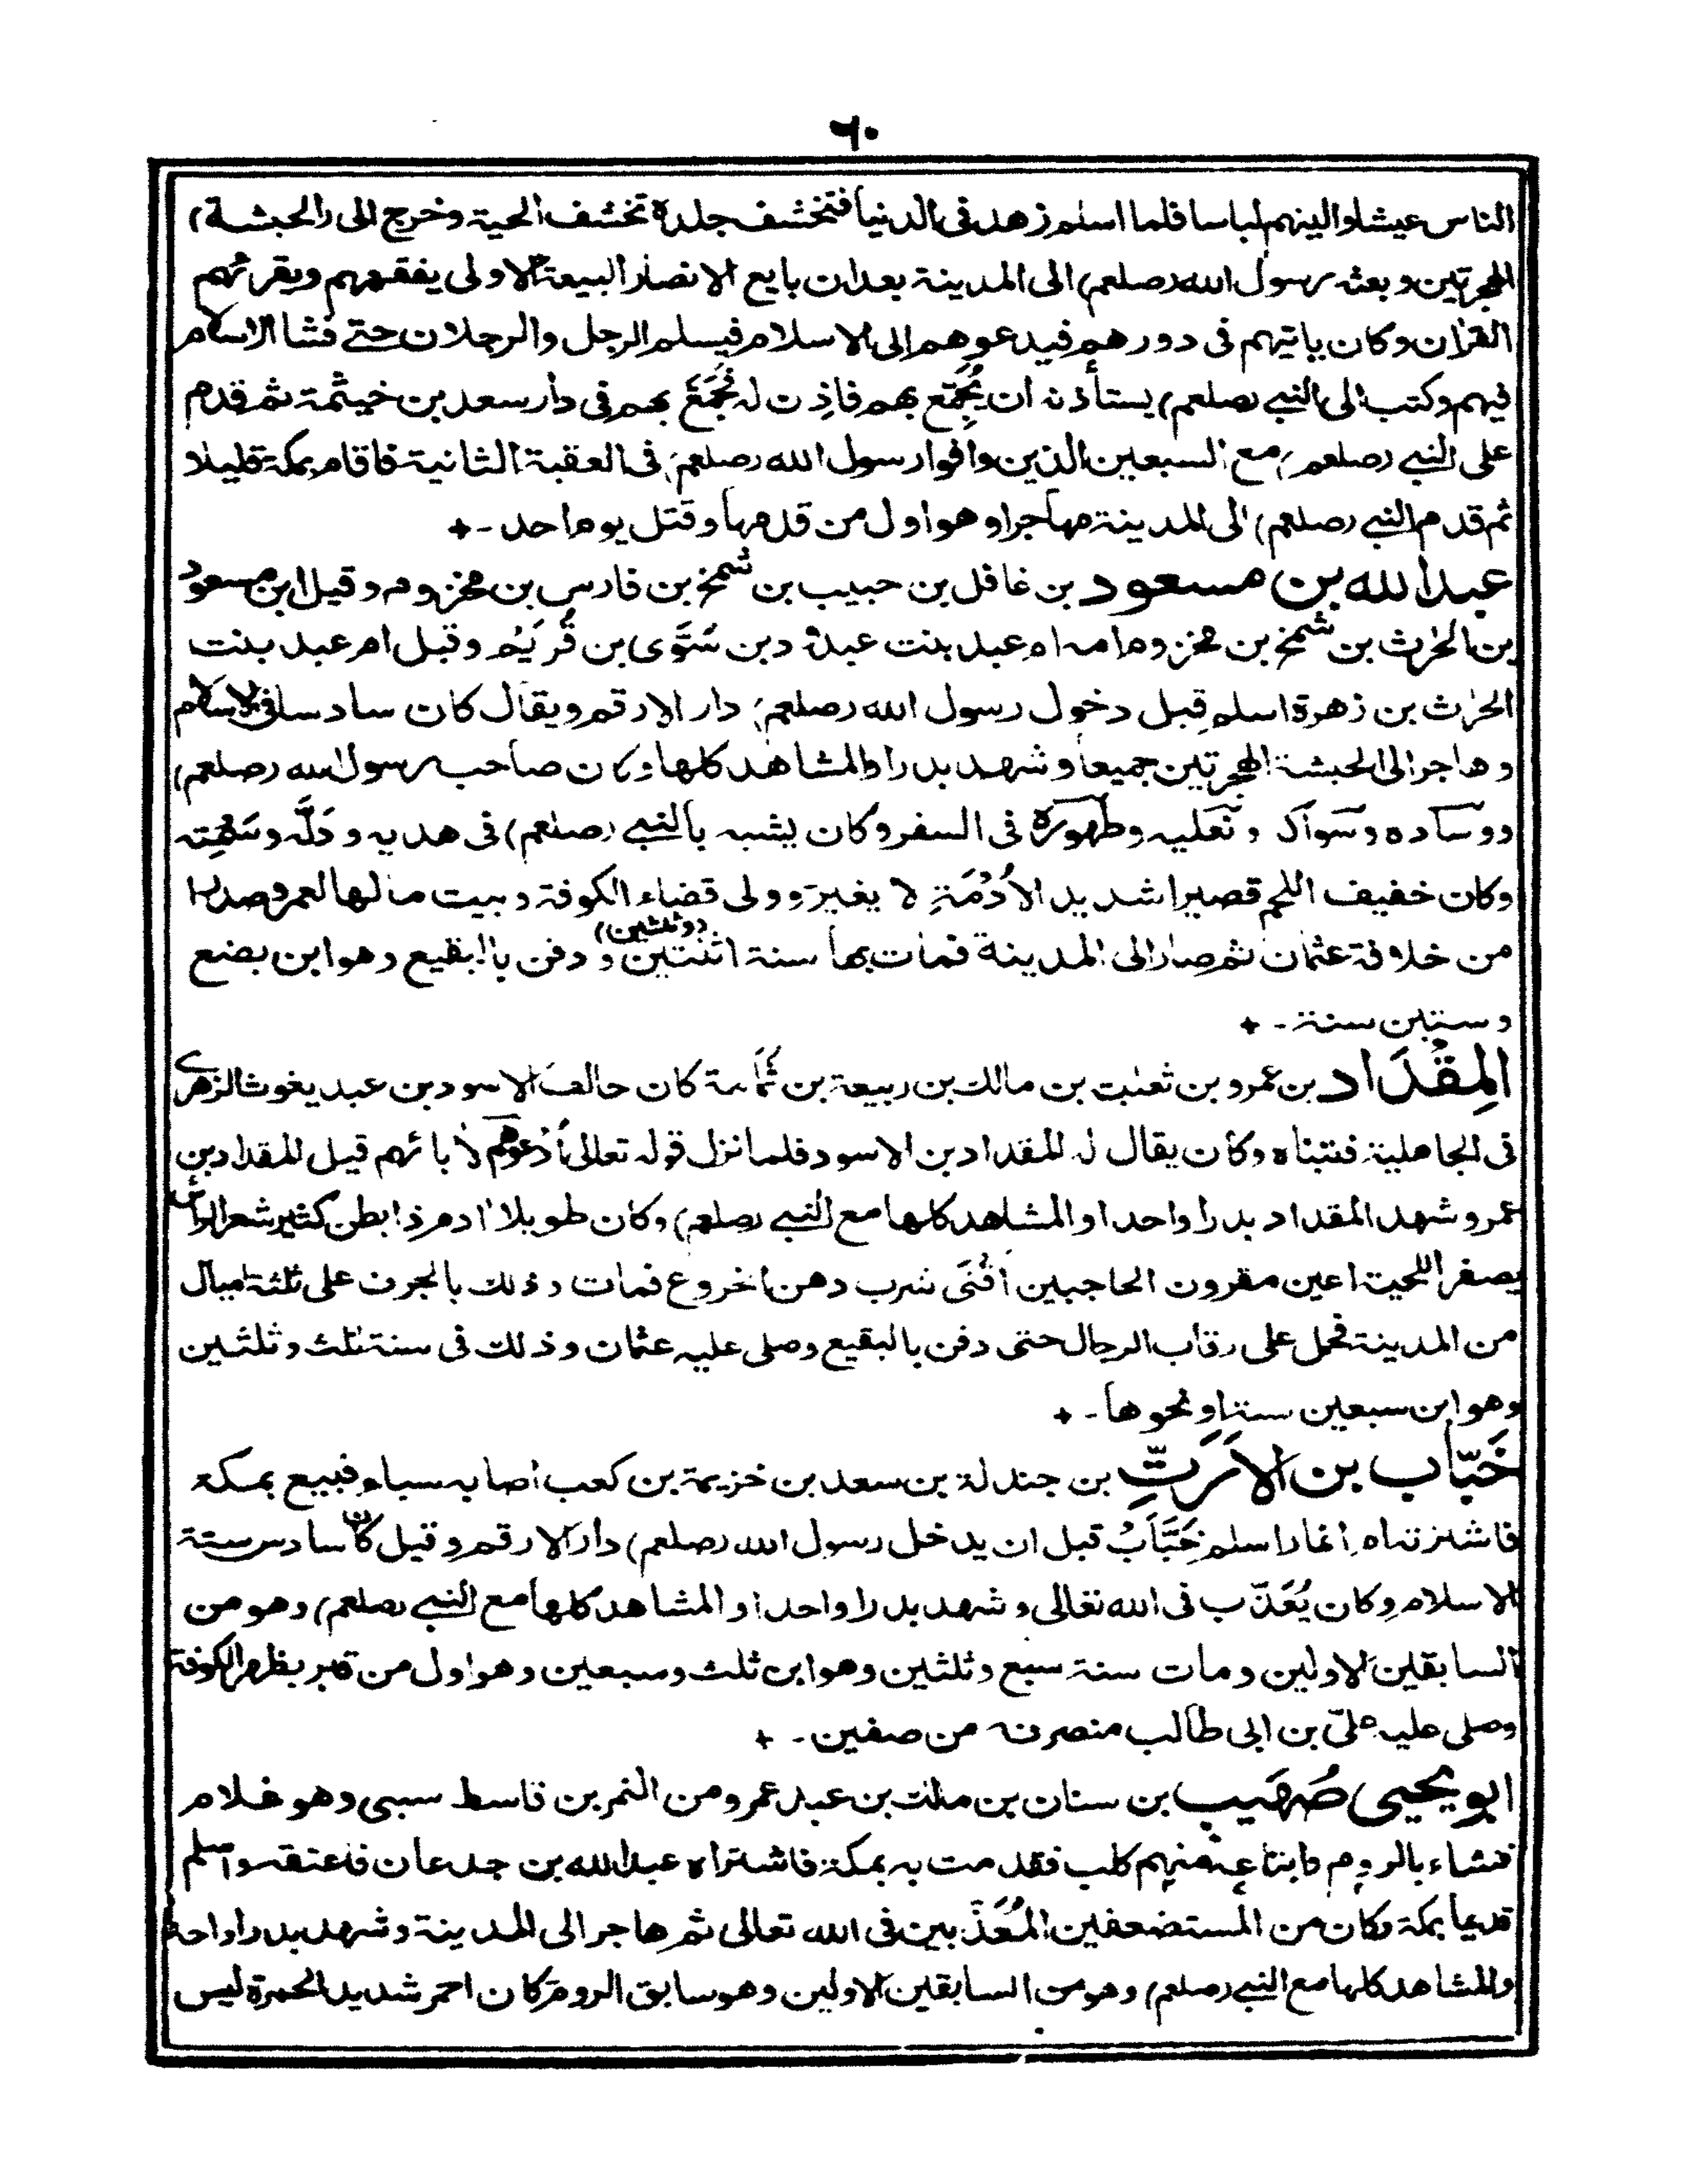 ٦٠
الناس عيشا والينهم لباسا فلما اسلم زهد فى الدنيا فتخشف جلده تخشف الحية وخرج الى (الحبشة)
الهجرتين وبعثه رسول الله (صلعم) الى المدينة بعد ان بايع الانصار البيعة الاولى يفقههم ويقرئهم
القران وكان ياتيهم فى دورهم فيدعوهم الى الاسلام فيسلم الرجل والرجلان حتے فشا الاسلام
فيهم وكتب الى النبے (صلعم) يستأذنه ان يُجَمِّع بهم فاذن له فجَمَّعَ بهم فى دار سعد بن خيثمة ثم قدم
على النبے (صلعم) مع السبعين الذين وافوا رسول الله (صلعم) فى العقبة الثانية فاقام بمكة قليلا
ثم قدم النبے (صلعم) الى المدينة مهاجرا وهو اول من قدمها وقتل يوم احد - +
عبد الله بن مسعود بن غافل بن حبيب بن شمخ بن فارس بن مخزوم وقيل ابن مسعود
بن الحرٰث بن شمخ بن مخزوم امه ام عبد بنت عبد ود بن سَوَّى بن قُرَيْم وقيل ام عبد بنت
الحرٰث بن زهرة اسلم قبل دخول رسول الله (صلعم) دار الارقم ويقال كان سادسا فى الاسلام
وهاجر الى الحبشة الهجرتين جميعا وشهد بدرا والمشاهد كلها وكان صاحب رسول الله (صلعم)
ووساده وسواكه ونعليه وطهوره فى السفر وكان يشبه بالنبے (صلعم) فى هديه ودَلِّه وسَمْتِه
وكان خفيف اللحم قصيرا شديد الأُدْمَةِ لا يغير وولى قضاء الكوفة وبيت مالها لعمر وصدرا
من خلافة عثمان ثم صار الى المدينة فمات بها سنة اثنتين (وثلثين) ودفن بالبقيع وهو ابن بضع
وستين سنة - +
المِقْدَاد بن عمرو بن ثعلبة بن مالك بن ربيعة بن ثُمَامة كان حالف الاسود بن عبد يغوث الزهرى
فى الجاهلية فتبناه وكان يقال له المقداد بن الاسود فلما نزل قوله تعالى أُدْعُوهُم لأبائهم قيل المقداد بن
عمرو شهد المقداد بدرا واحدا والمشاهد كلها مع النبے (صلعم) وكان طويلا ادم ذا بطن كثير شعر الرأس
يصفر اللحية اعين مقرون الحاجبين أقْنَى شرب دهن الخروع فمات وذلك بالجرف على ثلثة اميال
من المدينة فحمل على رقاب الرجال حتى دفن بالبقيع وصلى عليه عثمان وذلك فى سنة ثلث وثلثين
وهو ابن سبعين سنة او نحوها - +
خَبّاب بن الأَرَتِّ بن جندلة بن سعد بن خزيمة بن كعب اصابه سباء فبيع بمكة
فاشترته ام انمار اسلم خَبَّابٌ قبل ان يدخل رسول الله (صلعم) دار الارقم وقيل كان سادس ستة
الاسلام وكان يُعَذَّب فى الله تعالى وشهد بدرا واحدا والمشاهد كلها مع النبے (صلعم) وهو من
السابقين الاولين ومات سنة سبع وثلثين وهو ابن ثلث وسبعين وهو اول من قبر بظهر الكوفة
وصلى عليه علىّ بن ابى طالب منصرفه من صفين - +
ابو يحيى صُهَيب بن سنان بن مالك بن عبد عمرو من النمر بن قاسط سبى وهو غلام
فنشاء بالروم فابتاعته منهم كلب فقدمت به بمكة فاشتراه عبد الله بن جدعان فاعتقه واسلم
قديما بمكة وكان من المستضعفين المُعَذّبين فى الله تعالى ثم هاجر الى المدينة وشهد بدرا واحدا
والمشاهد كلها مع النبے (صلعم) وهو من السابقين الاولين وهو سابق الروم كان احمر شديد الحمرة ليس